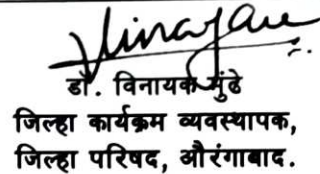 डॉ. विनायक मुंढे
जिल्हा कार्यक्रम व्यवस्थापक,
जिल्हा परिषद, औरंगाबाद.